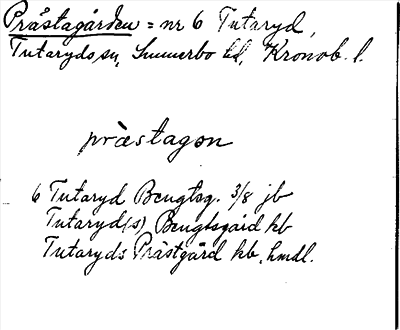 Prästagården = nr 6 Tutaryd,
Tutaryds sn, Sunnerbo hd, Kronob. l.
præstagon
6 Tutaryd Bengtsg. 3/8 jb
Tutaryd(s) Bengtsgård kb
Tutaryds Prästgård kb, hmdl.